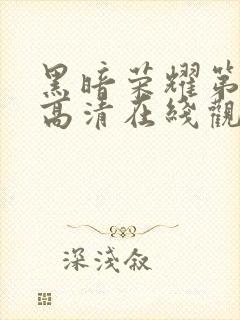 黑暗荣耀第
高清在线觀
深淺叙